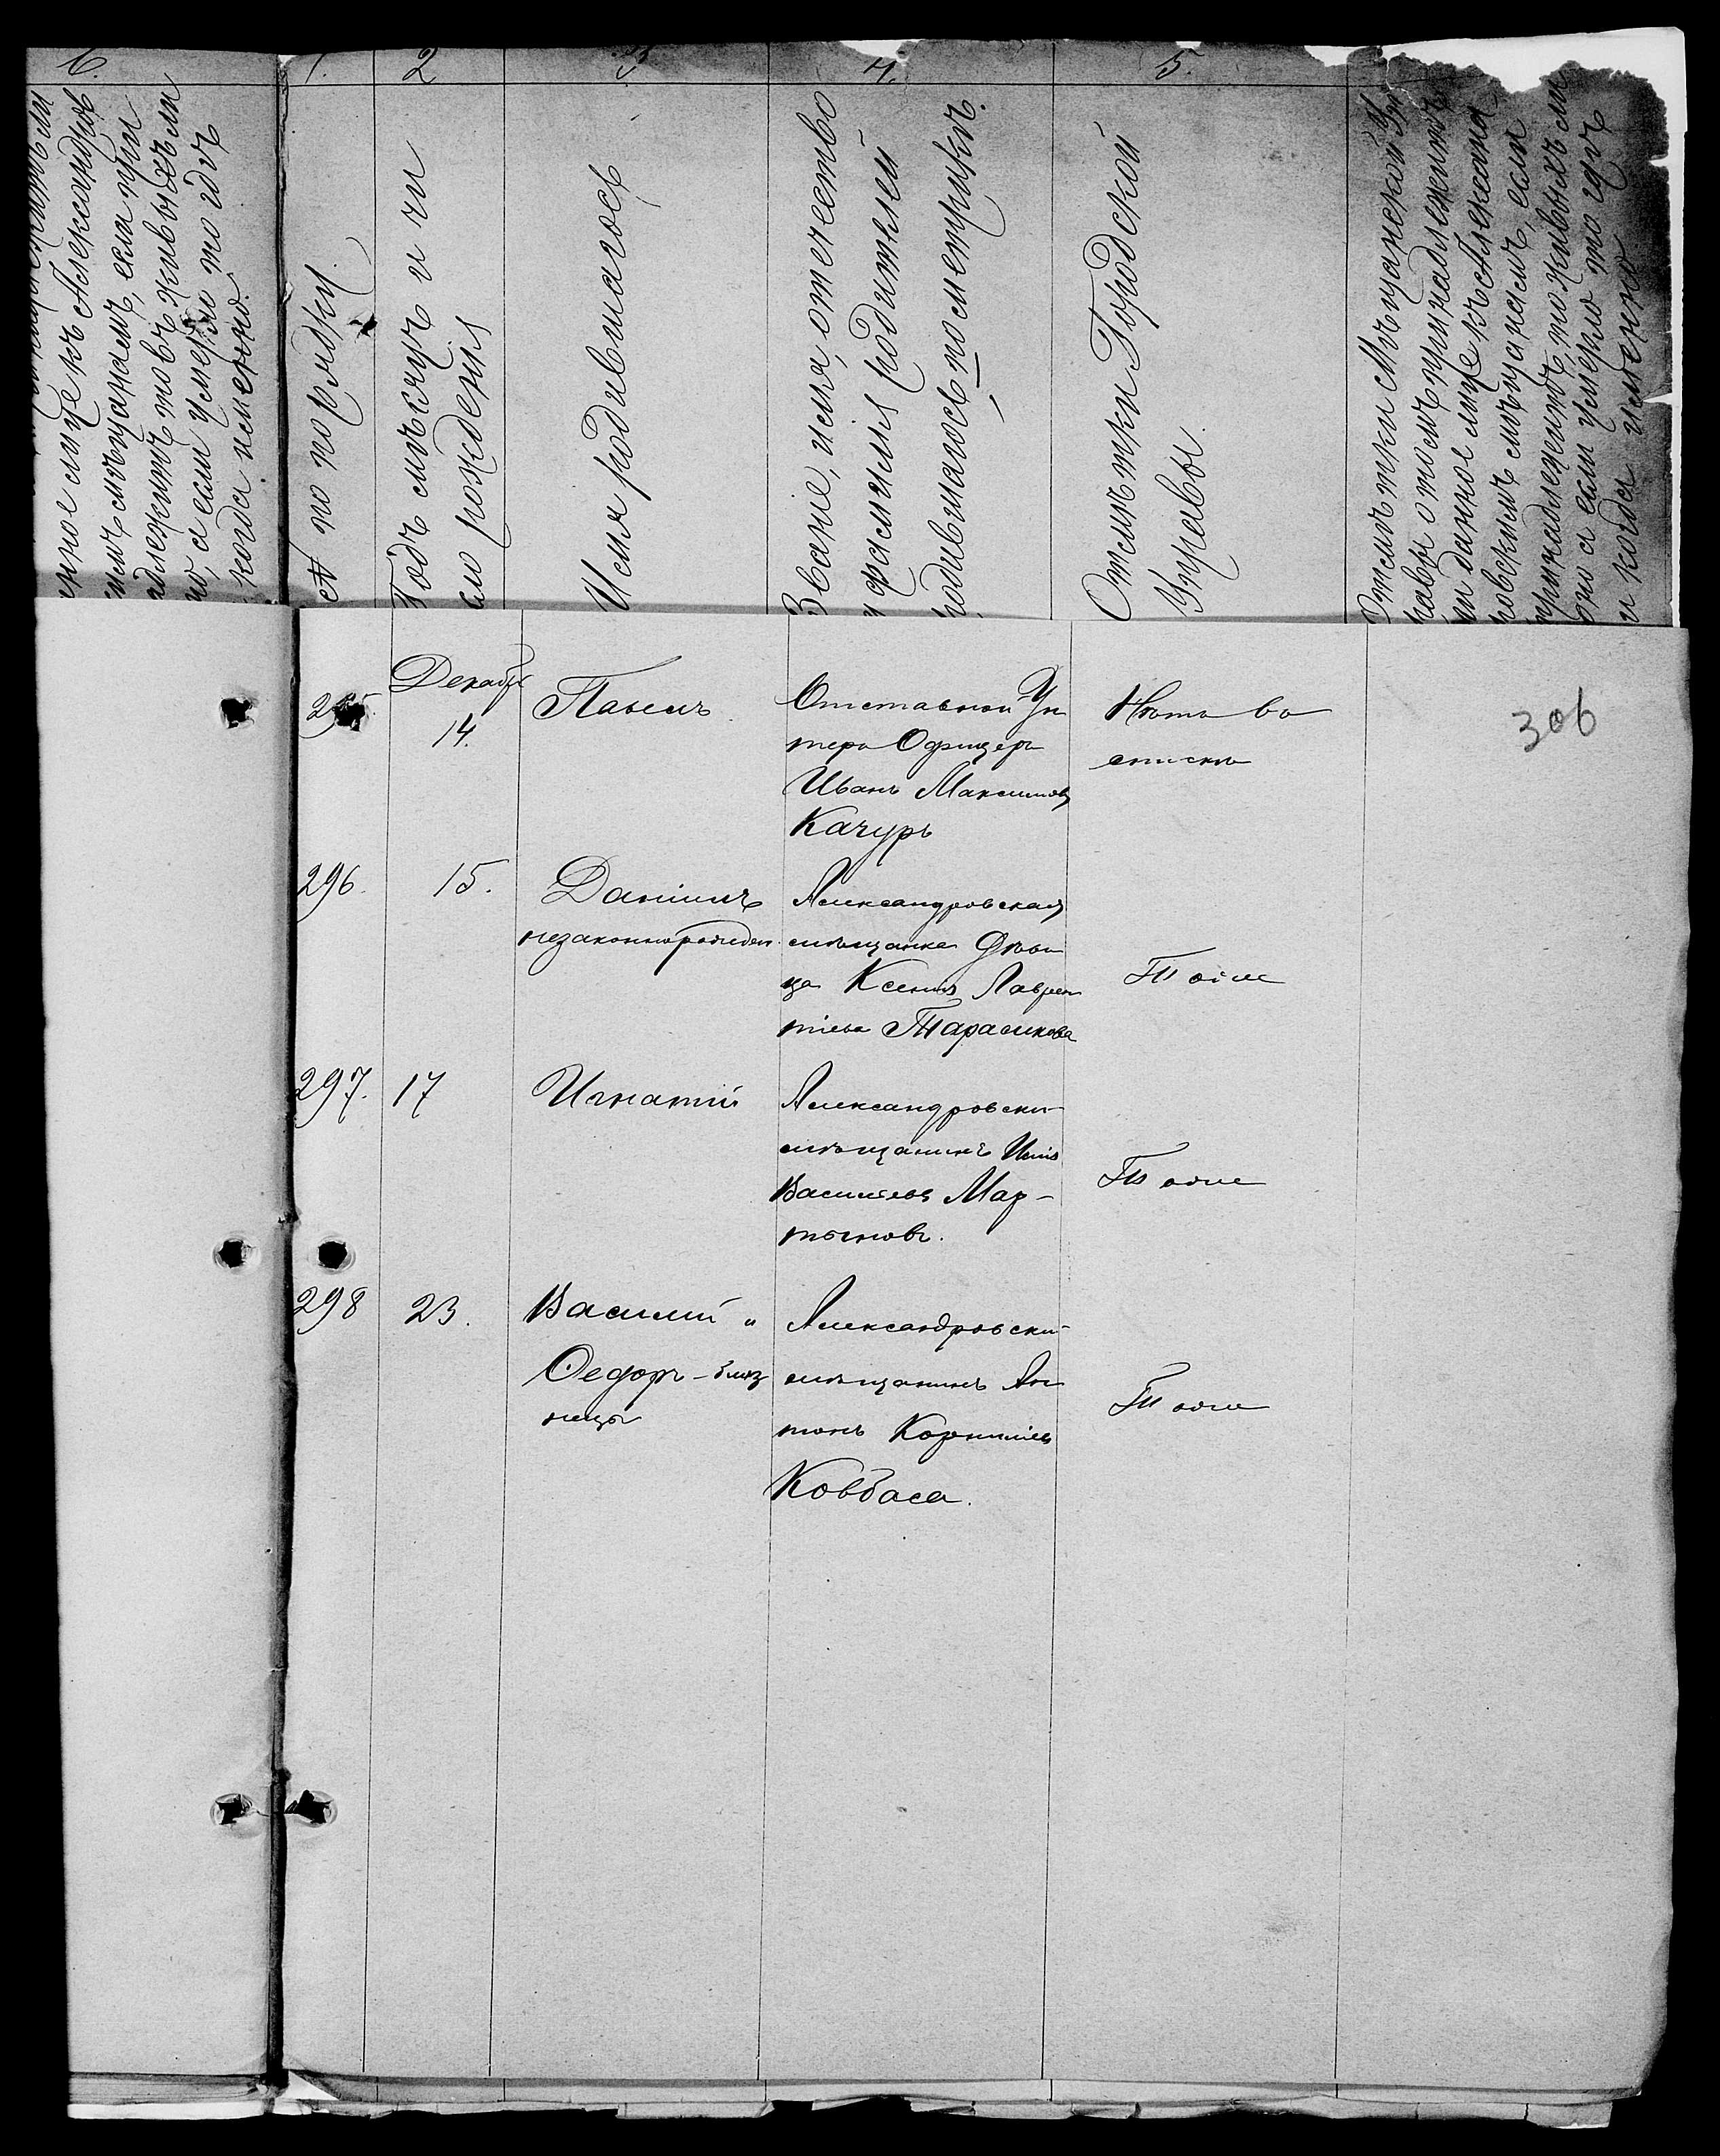 6.
нное лице къ Александров
имъ мѣщанамъ, если при
адлежитъ то въ живыхъ ли
но, а если умерло то гдѣ
когда именно.
1.
№ по порядку.
2
Годъ мѣсяцъ и чи
сло рожденія
3
Имя родившагося
4.
Званіе, имя, отчество
и фамилія родителей
родившагося по метрикѣ.
5.
Отмѣтки Городской
Управы.
Отмѣтки Мѣщанской Уп
равы о томъ принадлежитъ
ли данное лице къ Александ
ровскимъ мѣщанамъ, если
принадлежитъ, то живыхъ ли
оно а если умерло то гдѣ
и когда именно
306
295
Декабр
14.
Павелъ
Отставной Ун
теръ Офицеръ
Иванъ Максимовъ
Качуръ
Нѣтъ въ
спискѣ
296.
15.
Даніилъ
незаконнорожден.
Александровская
мѣщанка Дѣви
ца Ксенія Лаврен
тіева Тарасикова
Тоже
297.
17
Игнатій
Александровскі-
мѣщанинъ
Васильевъ Мар-
тыновъ.
Тоже
298
23.
Василій и
Ѳедоръ - близ
нецы
Александровскі-
мѣщанинъ Ан
тонъ Корниліевъ
Ковбаса.
Тоже